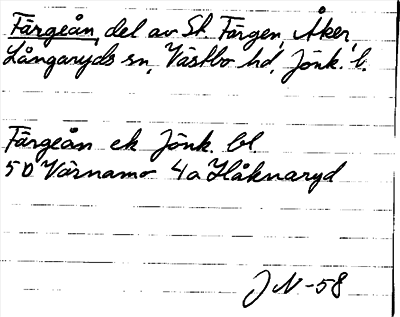 Färgeån, del av St. Färgen, Åker,
Långaryds sn, Västbo hd, Jönk. l.
Färgeån ek Jönk. bl.
5 D Värnamo 4a Håknaryd
J N -58